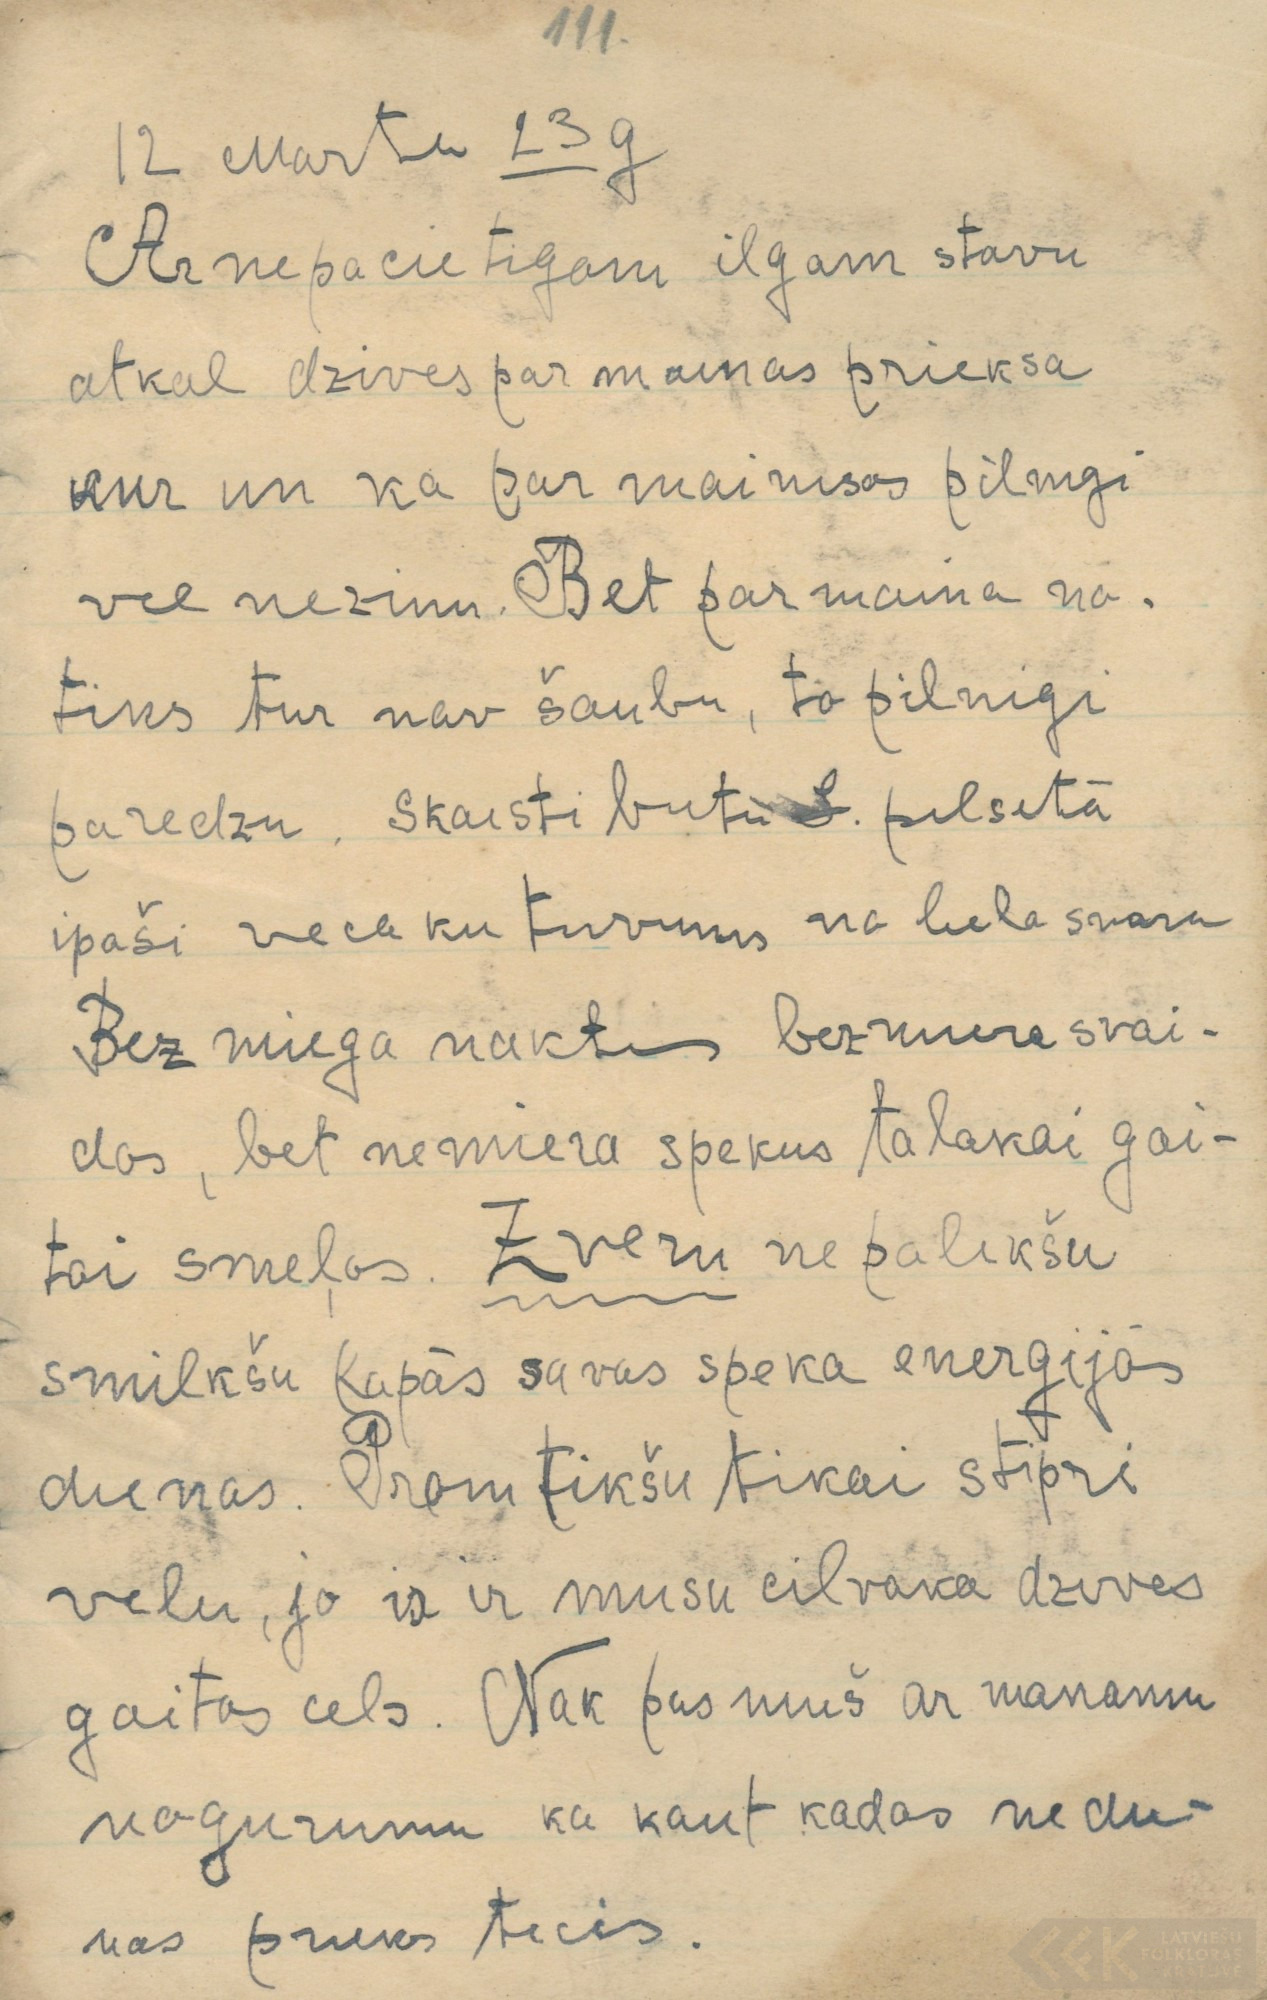 111.
12 Martu 23 g
Ar nepacietigam ilgam stavu
atkal dzives parmainas prieksa
kur un ka parmainisos pilnigi
vel nezinu. Bet parmaina no-
tiks tur nav šaubu, to pilnigi
paredzu. Skaisti butu L. pilsetā
ipaši vecaku tuvums no liela svara
Bez miega naktis bezmiera svai-
dos, bet nemiera spekus talakai gai-
tai smeļos. Zveru nepalikšu
smilkšu kapās savas speka energijās
dienas. Prom tikšu tikai stipri
velu, jo ir musu cilveka dzives
gaitas cels. Nak pus muš ar manamu
nogurumu ka kaut kadas nedie-
nas prieks ticis.
LATVIEŠU
FOLKLORAS
KRĀTUVE